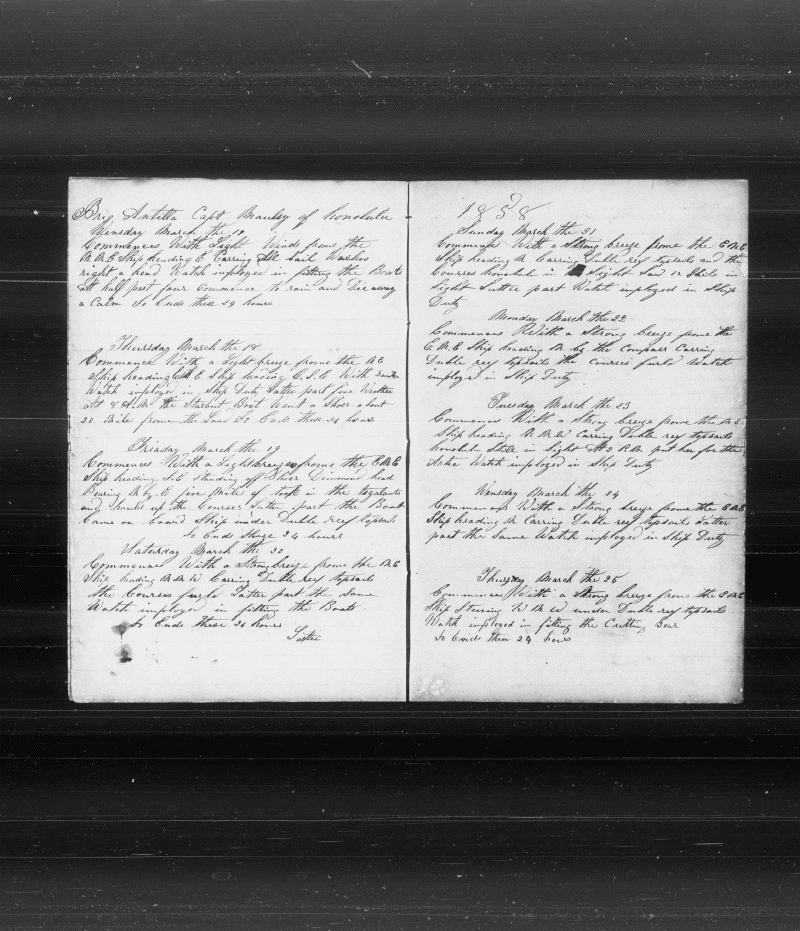 Brig Antilla Capt Maulsy of honolulu
Wensday March the 17
Commences With Light Winds frome the
N.N.E Ship heading E Carring All Sail
right a head Watch imployed in fitting the Boats
At half past four Commence to rain and Die away
a Calm So Ends these 24 hours
Thursday March the 18
Commence With a Light breeze frome the NE
Ship heading E.S.E With
Watch imployed in Ship Duty Latter part fine Weather
At 8 A.M. the Starbort Boat Went a Shore about
20 Mile frome the Land So Ends these 24 hours
Friaday March the 19
Commences With a Light breeze frome the ENE
Ship heading S.E Standing off Shore Dimmond head
Bearing N by E five Miles of took in the togalants
and hauls up the Courses Latter part the Boat
Came on board Ship under Duble reef topsails
So Ends these 24 hours
Saturday March the 20
Commences With a Strong breeze frome the NE
Ship heading N.N.W Carring Duble reef topsails
the Courses furld Latter part the Same
Watch imployed in fitting the Boats
So Ends these 24 hours
Latter
1858
Sunday March the 21
Commences With a Strong breeze frome the ENE
Ship heading N Carring Duble reef topsails and the
Courses honolulu in Sight Saw 2 Sails in
Sight Latter part Watch imployed in Ship
Duty
Monday March the 22
Commences With a Strong breeze frome the
E.N.E Ship heading N by the Compass Carring
Duble reef topsails the Courses furld Watch
imployed in Ship Duty
Tuesday March the 23
Commences With a Strong breeze frome the N.E
Ship heading N.N.W Carring Duble reef topsails
honolulu Still in Sight At 2 P.M. put her for the
Watch imployed in Ship Duty
Wensday March the 24
Commences With a Strong breeze frome the ENE
Ship heading N Carring Duble reef topsails Latter
part the Same Watch imployed in Ship Duty
Thursday March the 25
Commences With a Strong breeze frome the ENE
Ship Stearing W N W under Duble reef topsails
Watch imployed in fitting the Cutting Gear
So Ends these 24 hours